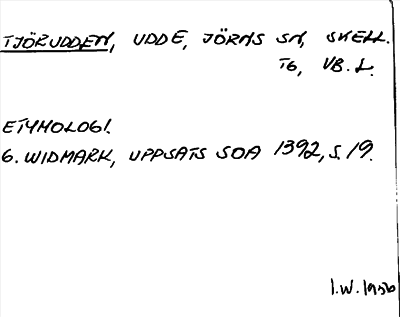 TJÖRUDDEN, UDDE, JÖRNS SN, SKELL.
TG, VB. L.
ETYMOLOGI.
G. WIDMARK, UPPSATS SOA 1392, S. 19.
I.W. 1950